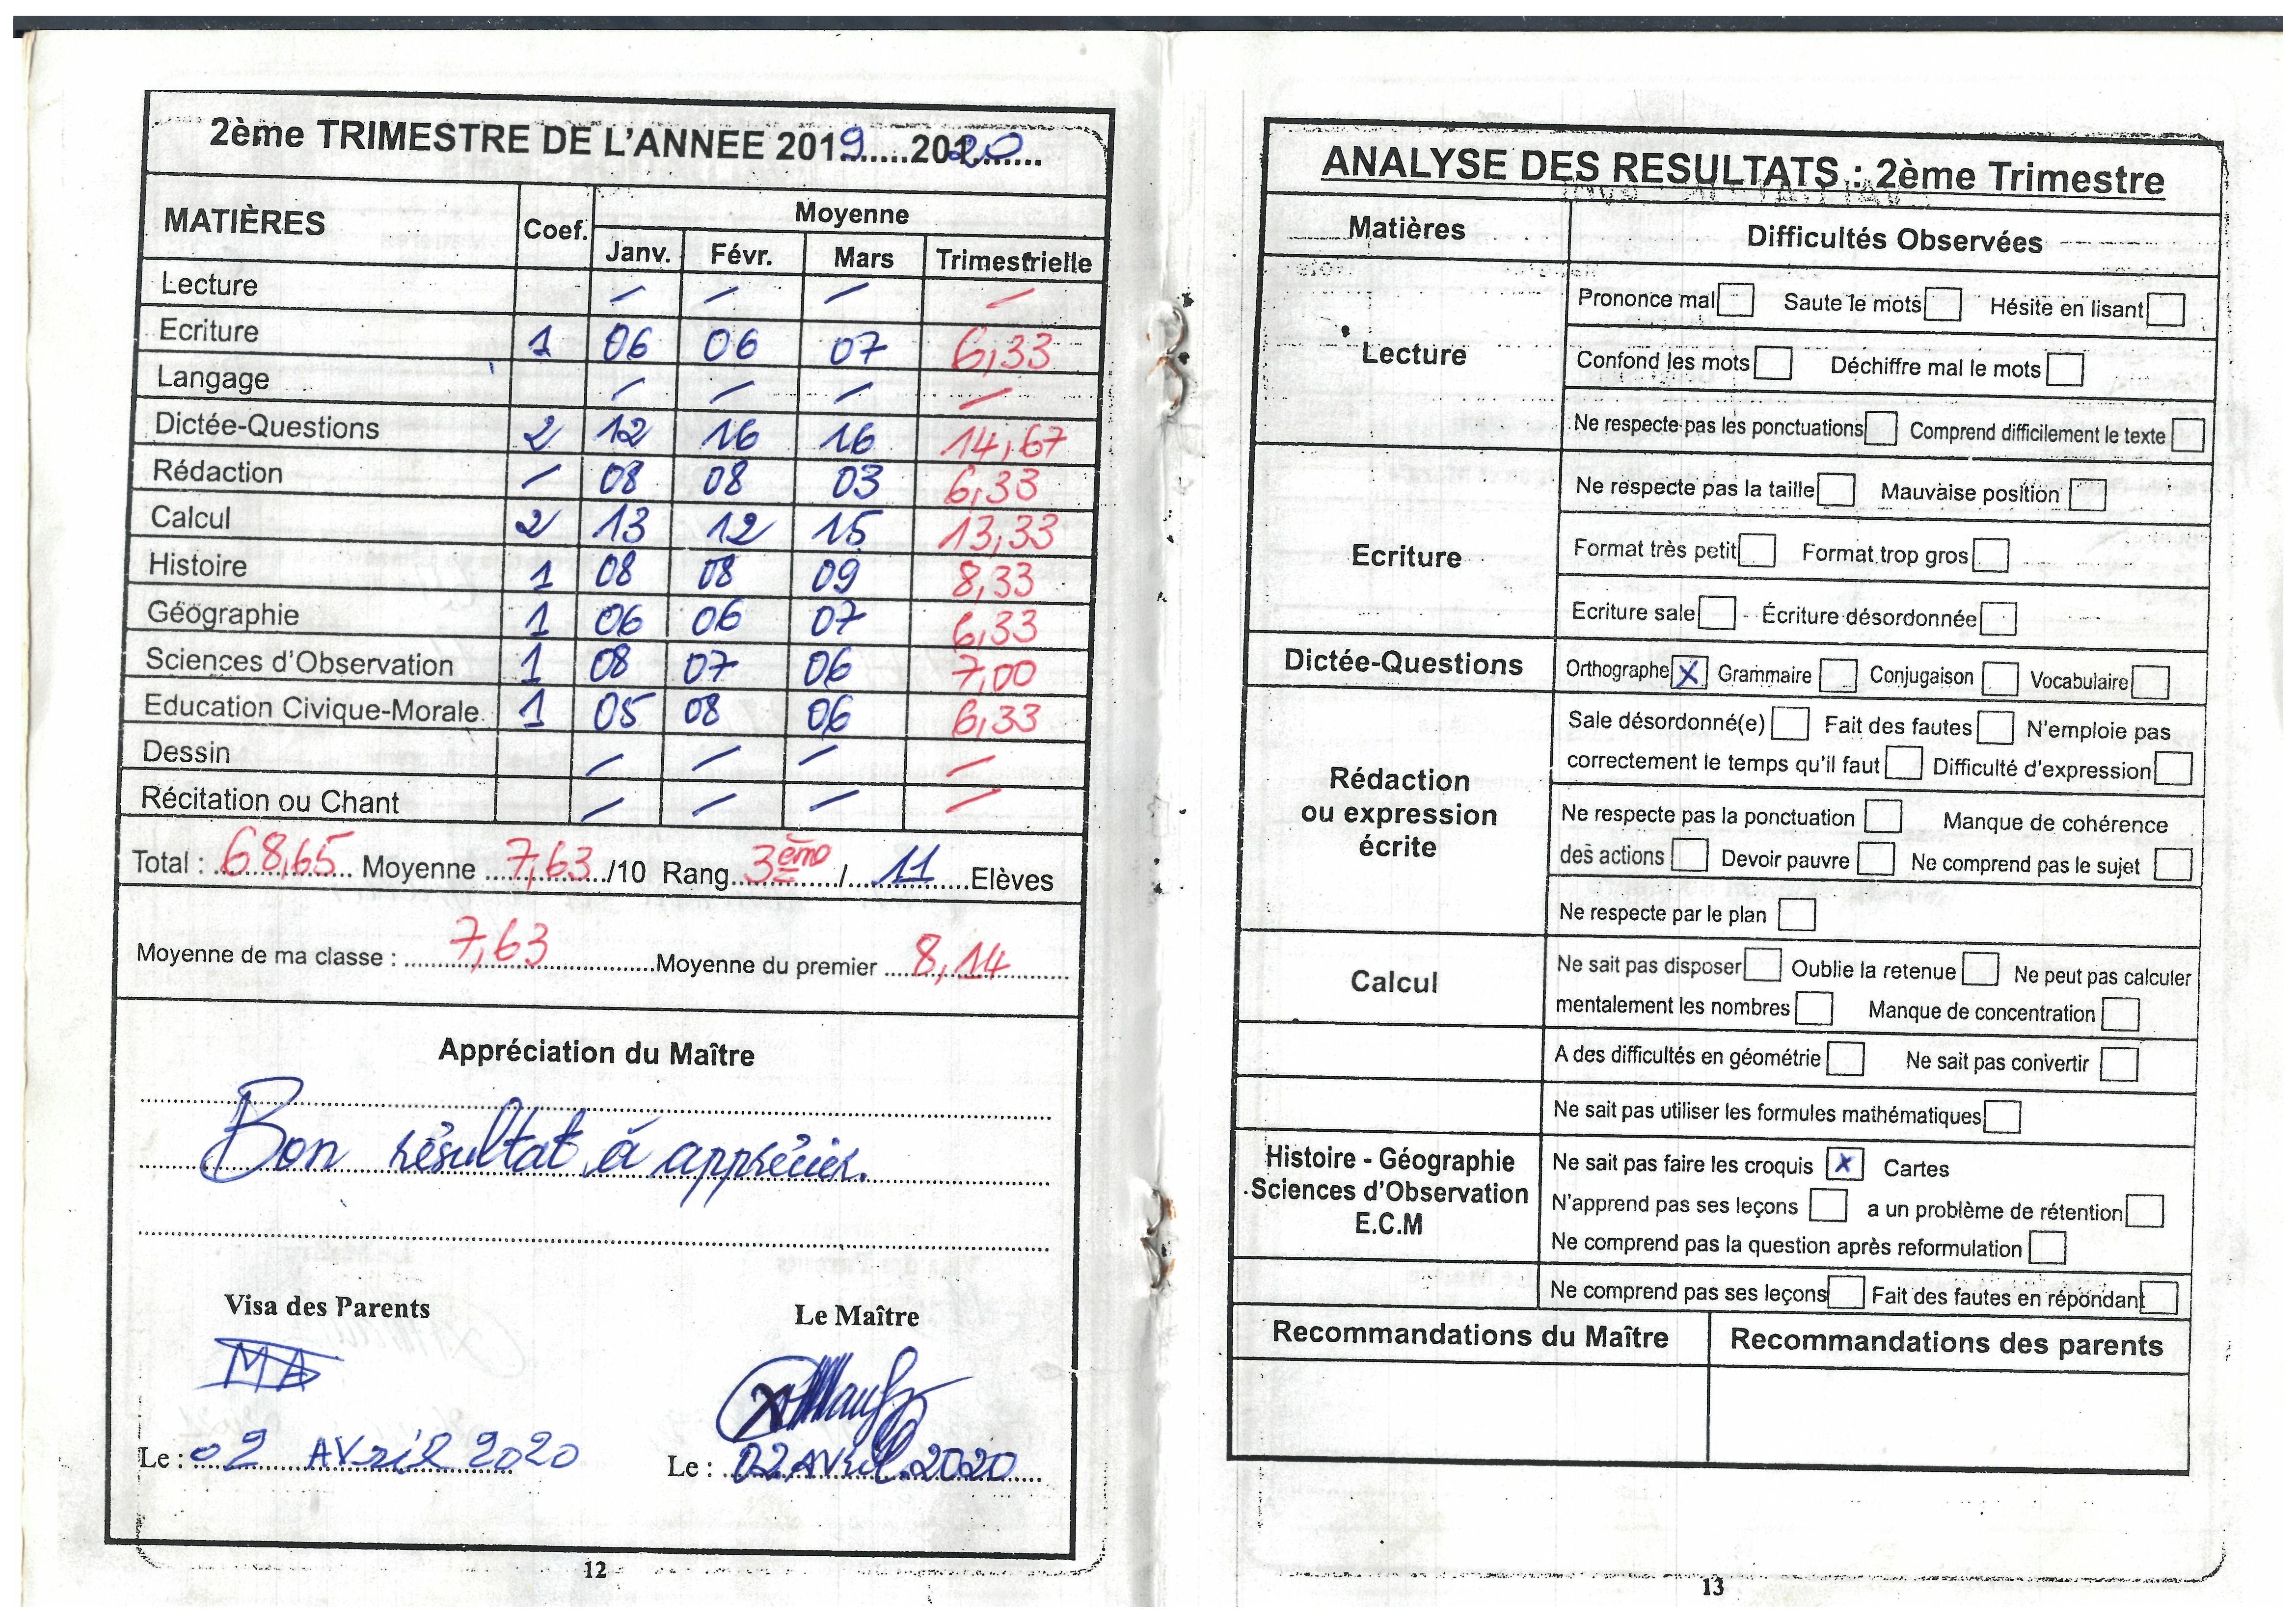 2ème TRIMESTRE DE L'ANNEE 2019.......20120.......
MATIÈRES Coef. Moyenne
Janv. Févr. Mars Trimestrielle
Lecture / / / /
Ecriture 1 06 06 07 6,33
Langage / / / /
Dictée-Questions 2 12 16 16 14,67
Rédaction / 08 08 03 6,33
Calcul 2 13 12 15 13,33
Histoire 1 08 08 09 8,33
Géographie 1 06 06 07 6,33
Sciences d'Observation 1 08 07 06 7,00
Education Civique-Morale 1 05 08 06 6,33
Dessin / / / /
Récitation ou Chant / / / /
Total : 68,65 Moyenne 7,63 /10 Rang 3ème / 11 Elèves
Moyenne de ma classe : 7,63 Moyenne du premier 8,14
Appréciation du Maître
Bon résultat à apprécier.
Visa des Parents Le Maître
MA
Le : 02 AVril 2020 Le : 02 AVril 2020
12
ANALYSE DES RESULTATS : 2ème Trimestre
Matières Difficultés Observées
Lecture
Prononce mal Saute le mots Hésite en lisant
Confond les mots Déchiffre mal le mots
Ne respecte pas les ponctuations Comprend difficilement le texte
Ecriture
Ne respecte pas la taille Mauvaise position
Format très petit Format trop gros
Ecriture sale - Écriture désordonnée
Dictée-Questions Orthographe X Grammaire Conjugaison Vocabulaire
Rédaction
ou expression
écrite
Sale désordonné(e) Fait des fautes N'emploie pas
correctement le temps qu'il faut Difficulté d'expression
Ne respecte pas la ponctuation Manque de cohérence
des actions Devoir pauvre Ne comprend pas le sujet
Ne respecte par le plan
Calcul
Ne sait pas disposer Oublie la retenue Ne peut pas calculer
mentalement les nombres Manque de concentration
A des difficultés en géométrie Ne sait pas convertir
Ne sait pas utiliser les formules mathématiques
Histoire - Géographie
Sciences d'Observation
E.C.M
Ne sait pas faire les croquis X Cartes
N'apprend pas ses leçons a un problème de rétention
Ne comprend pas la question après reformulation
Ne comprend pas ses leçons Fait des fautes en répondant
Recommandations du Maître Recommandations des parents
13